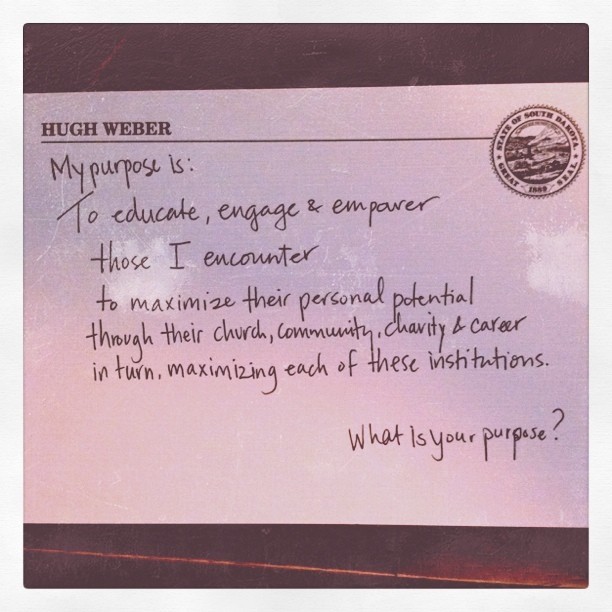 HUGH WEBER
STATE OF SOUTH DAKOTA
GREAT 1889 SEAL
My purpose is:
To educate, engage & empower
those I encounter
to maximize their personal potential
through their church, community, charity & career
in turn, maximizing each of these institutions.
What is your purpose?